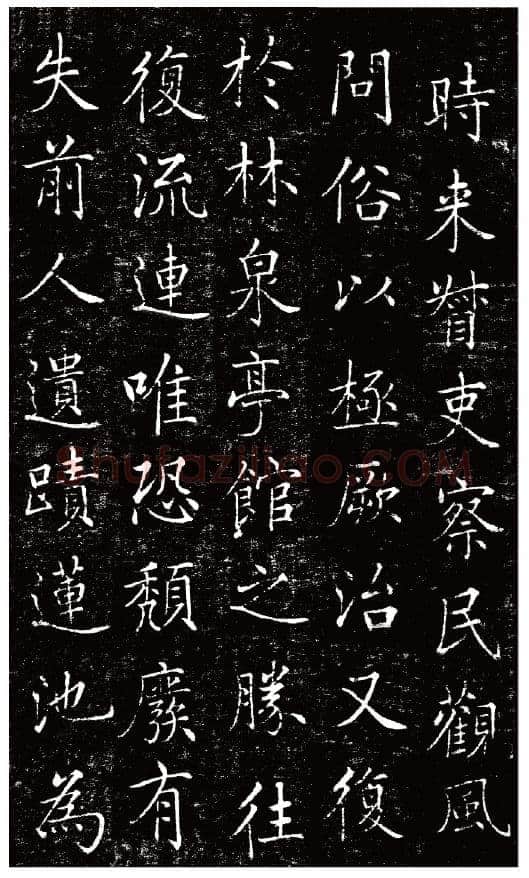 時来督吏察民觀風
問俗以極厥治又復
於林泉亭館之勝往
復流連唯恐頽廢有
失前人遺蹟蓮池為
Shufaziliao.COM